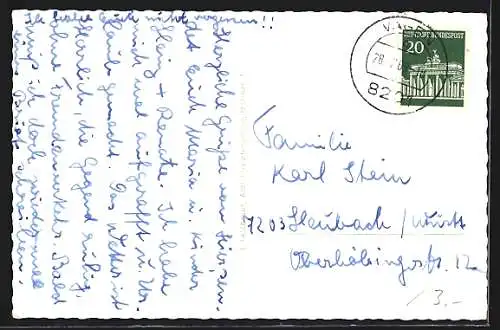 Ich habe Euch nicht vergessen!!
Herzliche Grüße von hier, sen-
det Euch Maria u. Kinder
Heinz + Renate. Ich habe
mich mal aufgerafft u. Ur-
laub gemacht. Das Wetter ist
herrlich, die Gegend ruhig,
ohne Fremdenverkehr. Bald
muß ich doch wieder mal
Brief schreiben.
28.
822
DEUTSCHE BUNDESPOST
20
Familie
Karl Stein
7203 Heubach / Württ
Oberhölzingerstr. 12a
/3.-